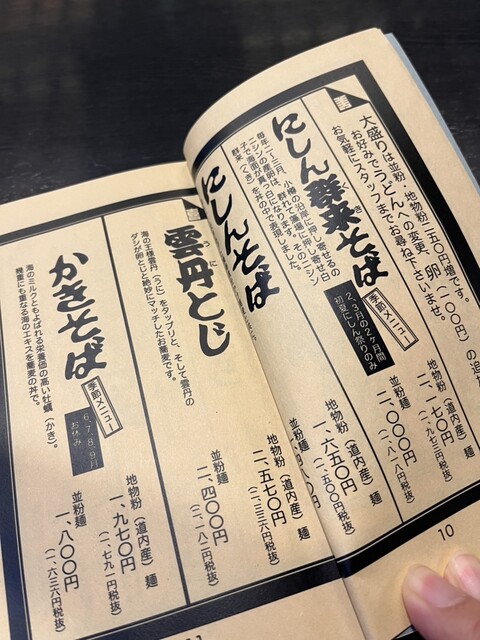 大盛りは並粉・地物粉二五〇円増です。
お好みでうどんへの変更、卵（一〇〇円）の追
お気軽にスタッフまでお尋ね下さいませ。
にしん群来そば
くき
季節メニュー
2、3月の2ヶ月間
初夏にしん祭りのみ
毎年二〜三月、小樽の沿岸に押し寄せる
群来（くき）を丼の中で表現しました。
地物粉（道内産）麺
二、一七〇円
（一、九七三円税抜）
並粉麺
二、〇〇〇円
（一、八一八円税抜）
にしんそば
地物粉（道内産）麺
一、六五〇円
（一、五〇〇円税抜）
10
雲丹とじ
うに
海の王様雲丹（うに）をタップリと、そして雲丹の
ダシが卵とじと絶妙にマッチしたお蕎麦です。
地物粉（道内産）麺
二、五七〇円
（二、三三六円税抜）
並粉麺
二、四〇〇円
（二、一八二円税抜）
かきそば
季節メニュー
6、7、8、9月
お休み
海のミルクともよばれる栄養価の高い牡蠣（かき）。
幾重にも重なる海のエキスを蕎麦の丼で。
地物粉（道内産）麺
一、九七〇円
（一、七九一円税抜）
並粉麺
一、八〇〇円
（一、六三六円税抜）